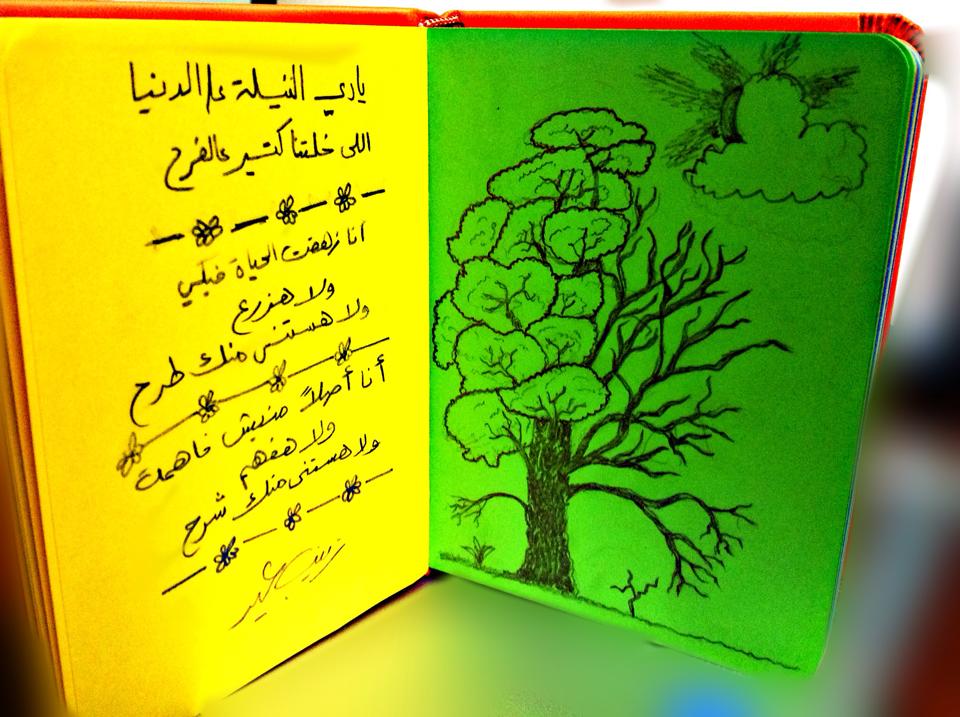 يادي النيلة عالدنيا
اللى خلتنا كتير عالفرح
أنا زهقت الحياة فيكي
ولا هزرع
ولا هستنى منك طرح
أنا أصلاً منيش فاهمة
ولا هفهم
ولا هستنى منك شرح